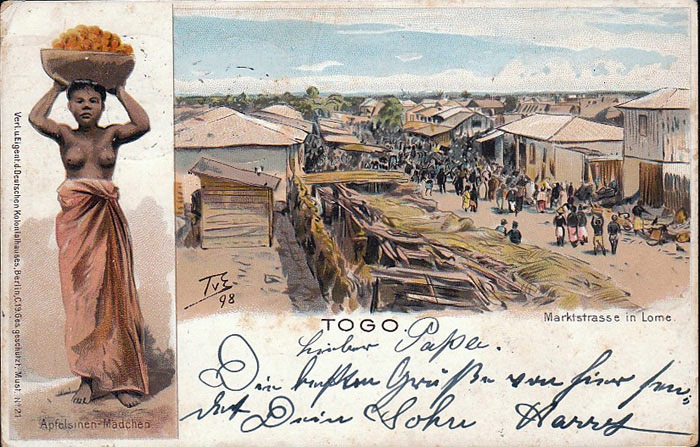 Verl. u. Eigent. d. Deutschen Kolonialhauses, Berlin, C.19. Ges. geschützt. Must. № 21
Apfelsinen-Mädchen
TvE
98
Marktstrasse in Lome.
TOGO
Lieber Papa.
Die besten Grüße von hier sen=
det Dein Sohn Harry